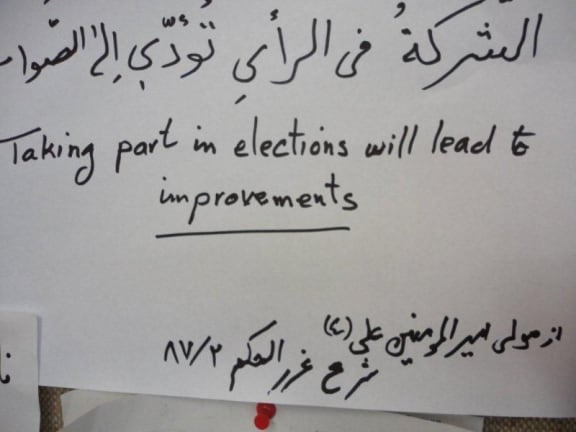 الشركةُ فى الرأيِ تُؤدّي إلىٰ الصّوا
Taking part in elections will lead to
improvements
از مولى امير المومنين على (ع)
شرح غرر الحكم ٨٧/٢